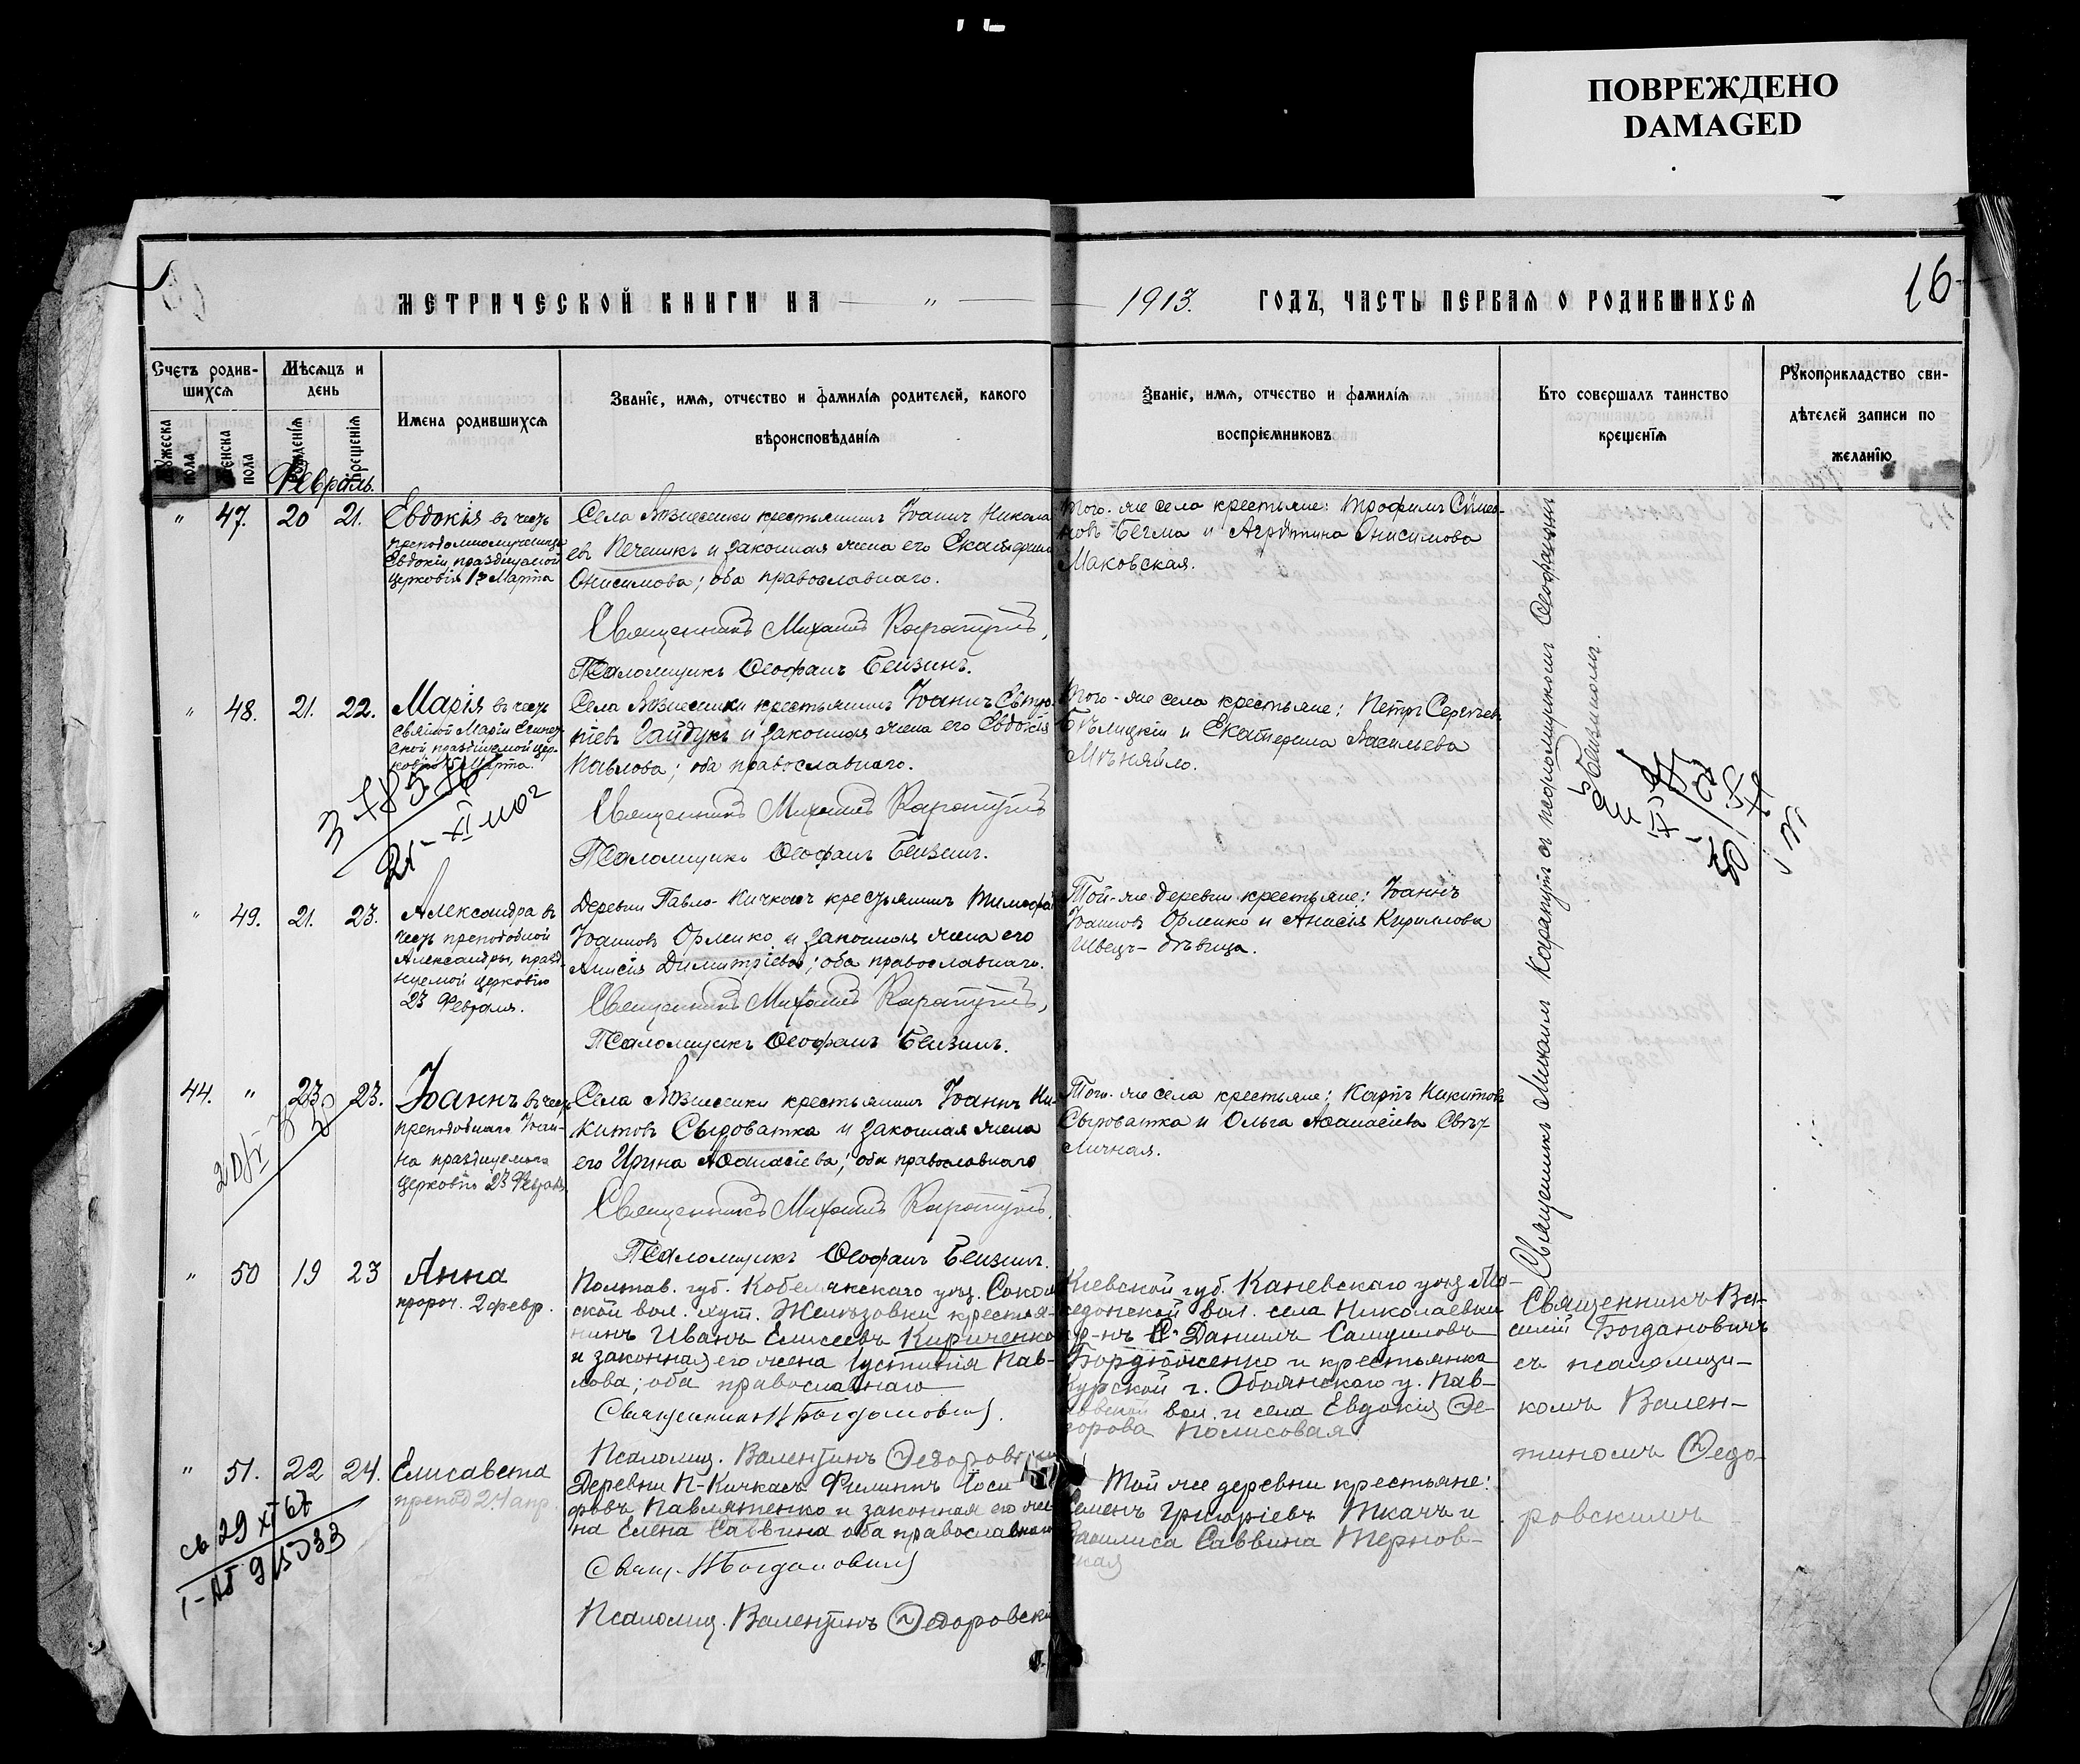 ПОВРЕЖДЕНО
DAMAGED
МЕТРИЧЕСКОЙ КНИГИ НА — „ — 1913. ГОДЪ, ЧАСТЬ ПЕРВАЯ О РОДИВШИХСЯ
16
Счетъ родив-
шихся
Мужеска пола
Женска пола
Мѣсяцъ и
день
рожденія
крещенія
Имена родившихся
Званіе, имя, отчество и фамилія родителей, какого
вѣроисповѣданія
Званіе, имя, отчество и фамилія
воспріемниковъ
Кто совершалъ таинство
крещенія
Рукоприкладство сви-
дѣтелей записи по
желанію
Февраль.
„ 47. 20 21.
Евдокія въ честь
преподомномученицы
Евдокіи, празднуемой
церковію 1го Марта
Села Вознесенки крестьянинъ Іоаннъ Никола
евъ Печеникъ и законная жена его Екатерина
Онисимова; оба православнаго.
Священникъ Михаилъ Карапутъ,
Псаломщикъ Ѳеофанъ Бейзинъ.
Того-же села крестьяне: Трофимъ Симео-
новъ Бегма и Агриппина Онисимова
Маковская.
Священникъ Михаилъ Карапутъ съ псаломщикомъ Ѳеофаномъ
Бейзиномъ.
„ 48. 21. 22.
Марія въ честь
святой Маріи Египет
ской, празднуемой цер-
ковію Марта.
Села Вознесенки крестьянинъ Іоаннъ
Гайдукъ и законная жена его Евдокія
Павлова; оба православнаго.
Священникъ Михаилъ Карапутъ
Псаломщикъ Ѳеофанъ Бейзинъ.
Того-же села крестьяне: Петръ Сергѣевъ
Бѣлицкій и Екатерина Васильева
Мѣняйло.
„ 49. 21. 23.
Александра въ
честь преподобной
Александры, празд-
нуемой церковію
23 Февраля.
Деревни Павло-Кичкасъ крестьянинъ Тимофей
Іоанновъ Орленко и законная жена его
Анисія Димитріева; оба православнаго.
Священникъ Михаилъ Карапутъ,
Псаломщикъ Ѳеофанъ Бейзинъ.
Той-же деревни крестьяне: Іоаннъ
Іоанновъ Орленко и Анисія Кириллова
Швецъ-дѣвица.
44. „ 23. 23.
Іоаннъ въ честь
преподобнаго Іоан-
на празднуемаго
церковію 23 Февраля
Села Вознесенки крестьянинъ Іоаннъ Ни-
китовъ Сыроватка и законная жена
его Ирина Аѳанасіева; оба православнаго
Священникъ Михаилъ Карапутъ.
Псаломщикъ Ѳеофанъ Бейзинъ.
Того-же села крестьяне: Карпъ Никитовъ
Сыроватка и Ольга Аѳанасіева Свѣт
личная.
„ 50 19 23
Анна
пророч. 2 февр.
Полтав. губ. Кобелякскаго уѣз. Соколь
ской вол. хут. Желѣзовки крестья-
нинъ Иванъ Елисеевъ Кириченко
и законная его жена Іустинія Пав-
лова; оба православнаго
Священникъ В Богдановичъ.
Псаломщ. Валентинъ Ѳедоровскій
Кіевской губ. Каневскаго уѣз Ма-
кедонской вол. села Николаевки
кр-нъ Даніилъ Самуиловъ
Бордюженко и крестьянка
Курской г. Обоянскаго у. Пав-
ловской вол. и села Евдокія Ѳе-
дорова Полисовая
Священникъ Ва-
силій Богдановичъ
съ псаломщи-
комъ Вален-
тиномъ Ѳедо-
ровскимъ
„ 51. 22 24.
Елисавета
препод 24 апр.
Деревни П-Кичкасъ Филиппъ Іоси
фовъ Павлятенко и законная его же-
на Елена Саввина оба православнаго
Свящ. В Богдановичъ
Псаломщ. Валентинъ Ѳедоровскій
Той же деревни крестьяне:
Семенъ Григоріевъ Ткачъ и
Василиса Саввина Тернов-
ская
св 29 XI 67